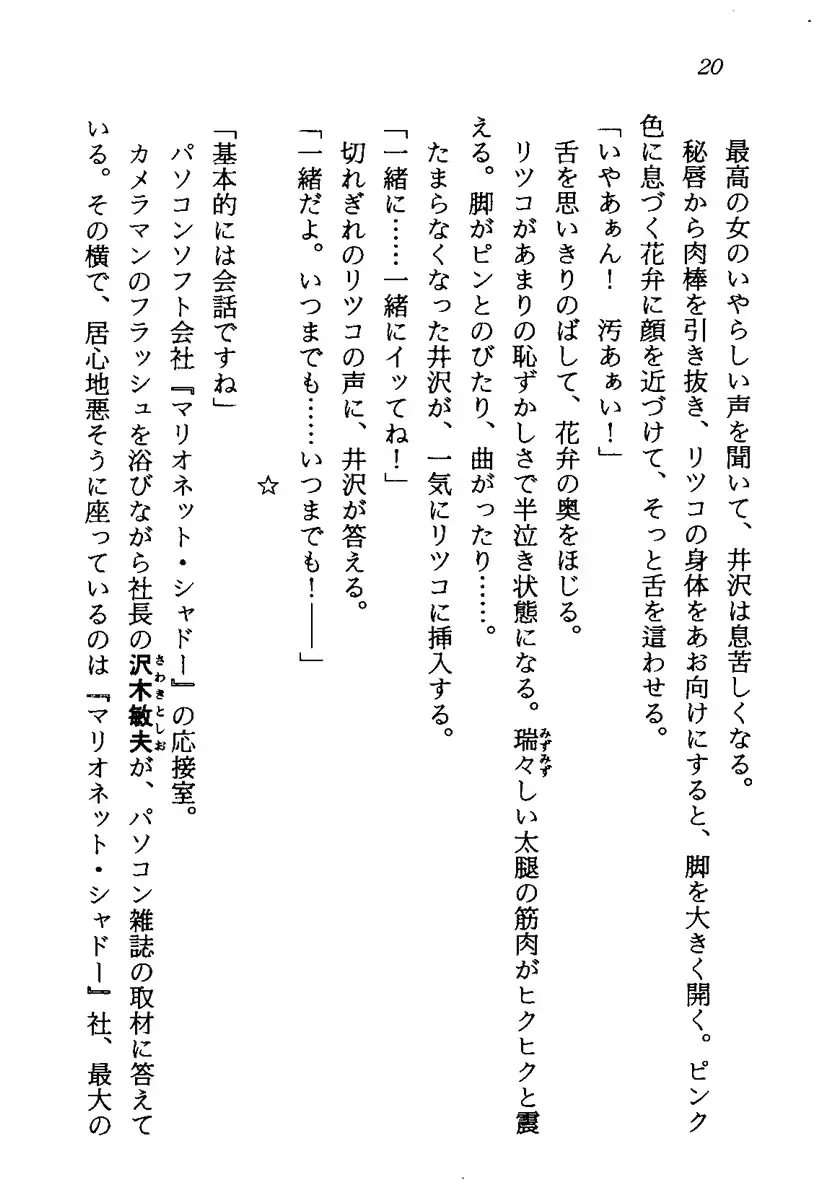 20
最高の女のいやらしい声を聞いて、井沢は息苦しくなる。
秘唇から肉棒を引き抜き、リツコの身体をあお向けにすると、脚を大きく開く。ピンク
色に息づく花弁に顔を近づけて、そっと舌を這わせる。
「いやあぁん！　汚あぁい！」
舌を思いきりのばして、花弁の奥をほじる。
リツコがあまりの恥ずかしさで半泣き状態になる。瑞々しい太腿の筋肉がヒクヒクと震
みずみず
える。脚がピンとのびたり、曲がったり……。
たまらなくなった井沢が、一気にリツコに挿入する。
「一緒に……一緒にイッてね！」
切れぎれのリツコの声に、井沢が答える。
「一緒だよ。いつまでも……いつまでも！――」
☆
「基本的には会話ですね」
パソコンソフト会社『マリオネット・シャドー』の応接室。
カメラマンのフラッシュを浴びながら社長の沢木敏夫が、パソコン雑誌の取材に答えて
さわきとしお
いる。その横で、居心地悪そうに座っているのは『マリオネット・シャドー』社、最大の